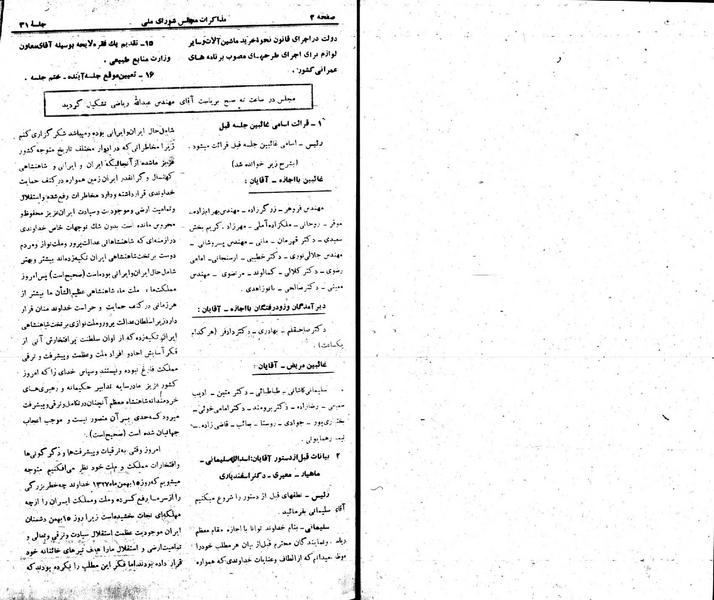 صفحه ۲
مذاکرات مجلس شورای ملی
جلسه ۳۱
دولت در اجرای قانون نحوه خرید ماشین آلات و سایر
لوازم برای اجرای طرحهای مصوب برنامه های
عمرانی کشور.
۱۵ـ تقدیم یك فقره لایحه بوسیله آقای معاون
وزارت منابع طبیعی.
۱۶ ـ تعیین موقع جلسه آینده ـ ختم جلسه.
مجلس در ساعت نه صبح بریاست آقای مهندس عبدالله ریاضی تشکیل گردید
۱ ـ قرائت اسامی غائبین جلسه قبل
رئیس ـ اسامی غائبین جلسه قبل قرائت میشود.
(بشرح زیر خوانده شد)
غائبین با اجازه ـ آقایان:
مهندس فروهر ـ زرگرزاده ـ مهندس بهرامزاده ـ
موقر ـ روحانی ـ ملکزاده آملی ـ مهرزاد ـ کریم بخش
سعیدی ـ دکتر قهرمان ـ مانی ـ مهندس پسروشانی ـ
مهندس جلالی نوری ـ دکتر خطیبی ـ ارسنجانی ـ امامی
رضوی ـ دکتر کلالی ـ کمالوند ـ مرتضوی ـ مهندس
معینی ـ دکتر صالحی ـ
دیرآمدگان و زودرفتگان با اجازه ـ آقایان:
دکتر صاحبقلم ـ بهادری ـ دکتر دادفر (هر کدام
یکساعت).
غائبین مریض ـ آقایان:
سلیمانی کاشانی ـ طباطبائی ـ دکتر متین ـ ادیب
سمیعی ـ رضازاده ـ دکتر برومند ـ دکتر امامی خوئی ـ
بختیاری پور ـ جوادی ـ روستا ـ صائب ـ قاضی زاده ـ
رهنمونی.
۲ بیانات قبل از دستور آقایان: اسدالله سلیمانی ـ
ماهیار ـ معیری ـ دکتر اسفندیاری
رئیس ـ نطقهای قبل از دستور را شروع میکنیم
آقای سلیمانی بفرمائید.
سلیمانی ـ بنام خداوند توانا با اجازه مقام معظم
ریاست و نمایندگان محترم قبل از بیان هر مطلب خود را
موظف میدانم که از الطاف و عنایات خداوندی که همواره
شامل حال ایران و ایرانی بوده و میباشد شکرگزاری کنم
زیرا مخاطراتی که در ادوار مختلف تاریخ متوجه کشور
عزیز ما شده از آنجائیکه ایران و ایرانی و شاهنشاهی
کهنسال و گرانقدر ایران زمین همواره در کنف حمایت
خداوندی قرار داشته و دارد مخاطرات رفع شده و استقلال
و تمامیت ارضی و موجودیت و سیادت ایران عزیز محفوظ و
محروس مانده است بدون شك توجهات خاص خداوندی
در ازمنه ای که شاهنشاهانی عدالت پرور و ملت نواز و مردم
دوست بر تخت شاهنشاهی ایران تکیه زده اند بیشتر و بهتر
شامل حال ایران و ایرانی بوده است (صحیح است) پس امروز
مملکت ما، ملت ما، شاهنشاهی عظیم الشأن ما بیشتر از
هر زمانی در کنف حمایت و حراست خداوند منان قرار
دارد زیرا سلطان عدالت پرور و ملت نوازی بر تخت شاهنشاهی
ایران تکیه زده که از اوان سلطنت پرافتخارش آنی از
فکر آسایش احاد و افراد ملت و عظمت و پیشرفت و ترقی
مملکت فارغ نبوده و نیستند و سپاس خدای را که امروز
کشور عزیز ما در سایه تدابیر حکیمانه و رهبری های
خردمندانه شاهنشاه معظم آنچنان در تکامل و ترقی و پیشرفت
میرود که حدی بر آن متصور نیست و موجب اعجاب
جهانیان شده است (صحیح است).
امروز وقتی به ترقیات و پیشرفتها و دگرگونی ها
و افتخارات مملکت و ملت خود نظر می افکنیم متوجه
میشویم که روز ۱۵ بهمن ماه ۱۳۲۷ خداوند چه خطر بزرگی
را از سر ما رفع کرده و ملت و مملکت ایران را از چه
مهلکه ای نجات بخشیده است زیرا روز ۱۵ بهمن دشمنان
ایران موجودیت عظمت استقلال سیادت و ترقی و تعالی و
تمامیت ارضی و استقلال ما را هدف تیرهای خائنانه خود
قرار داده بودند اما فکر این مطلب را نکرده بودند که